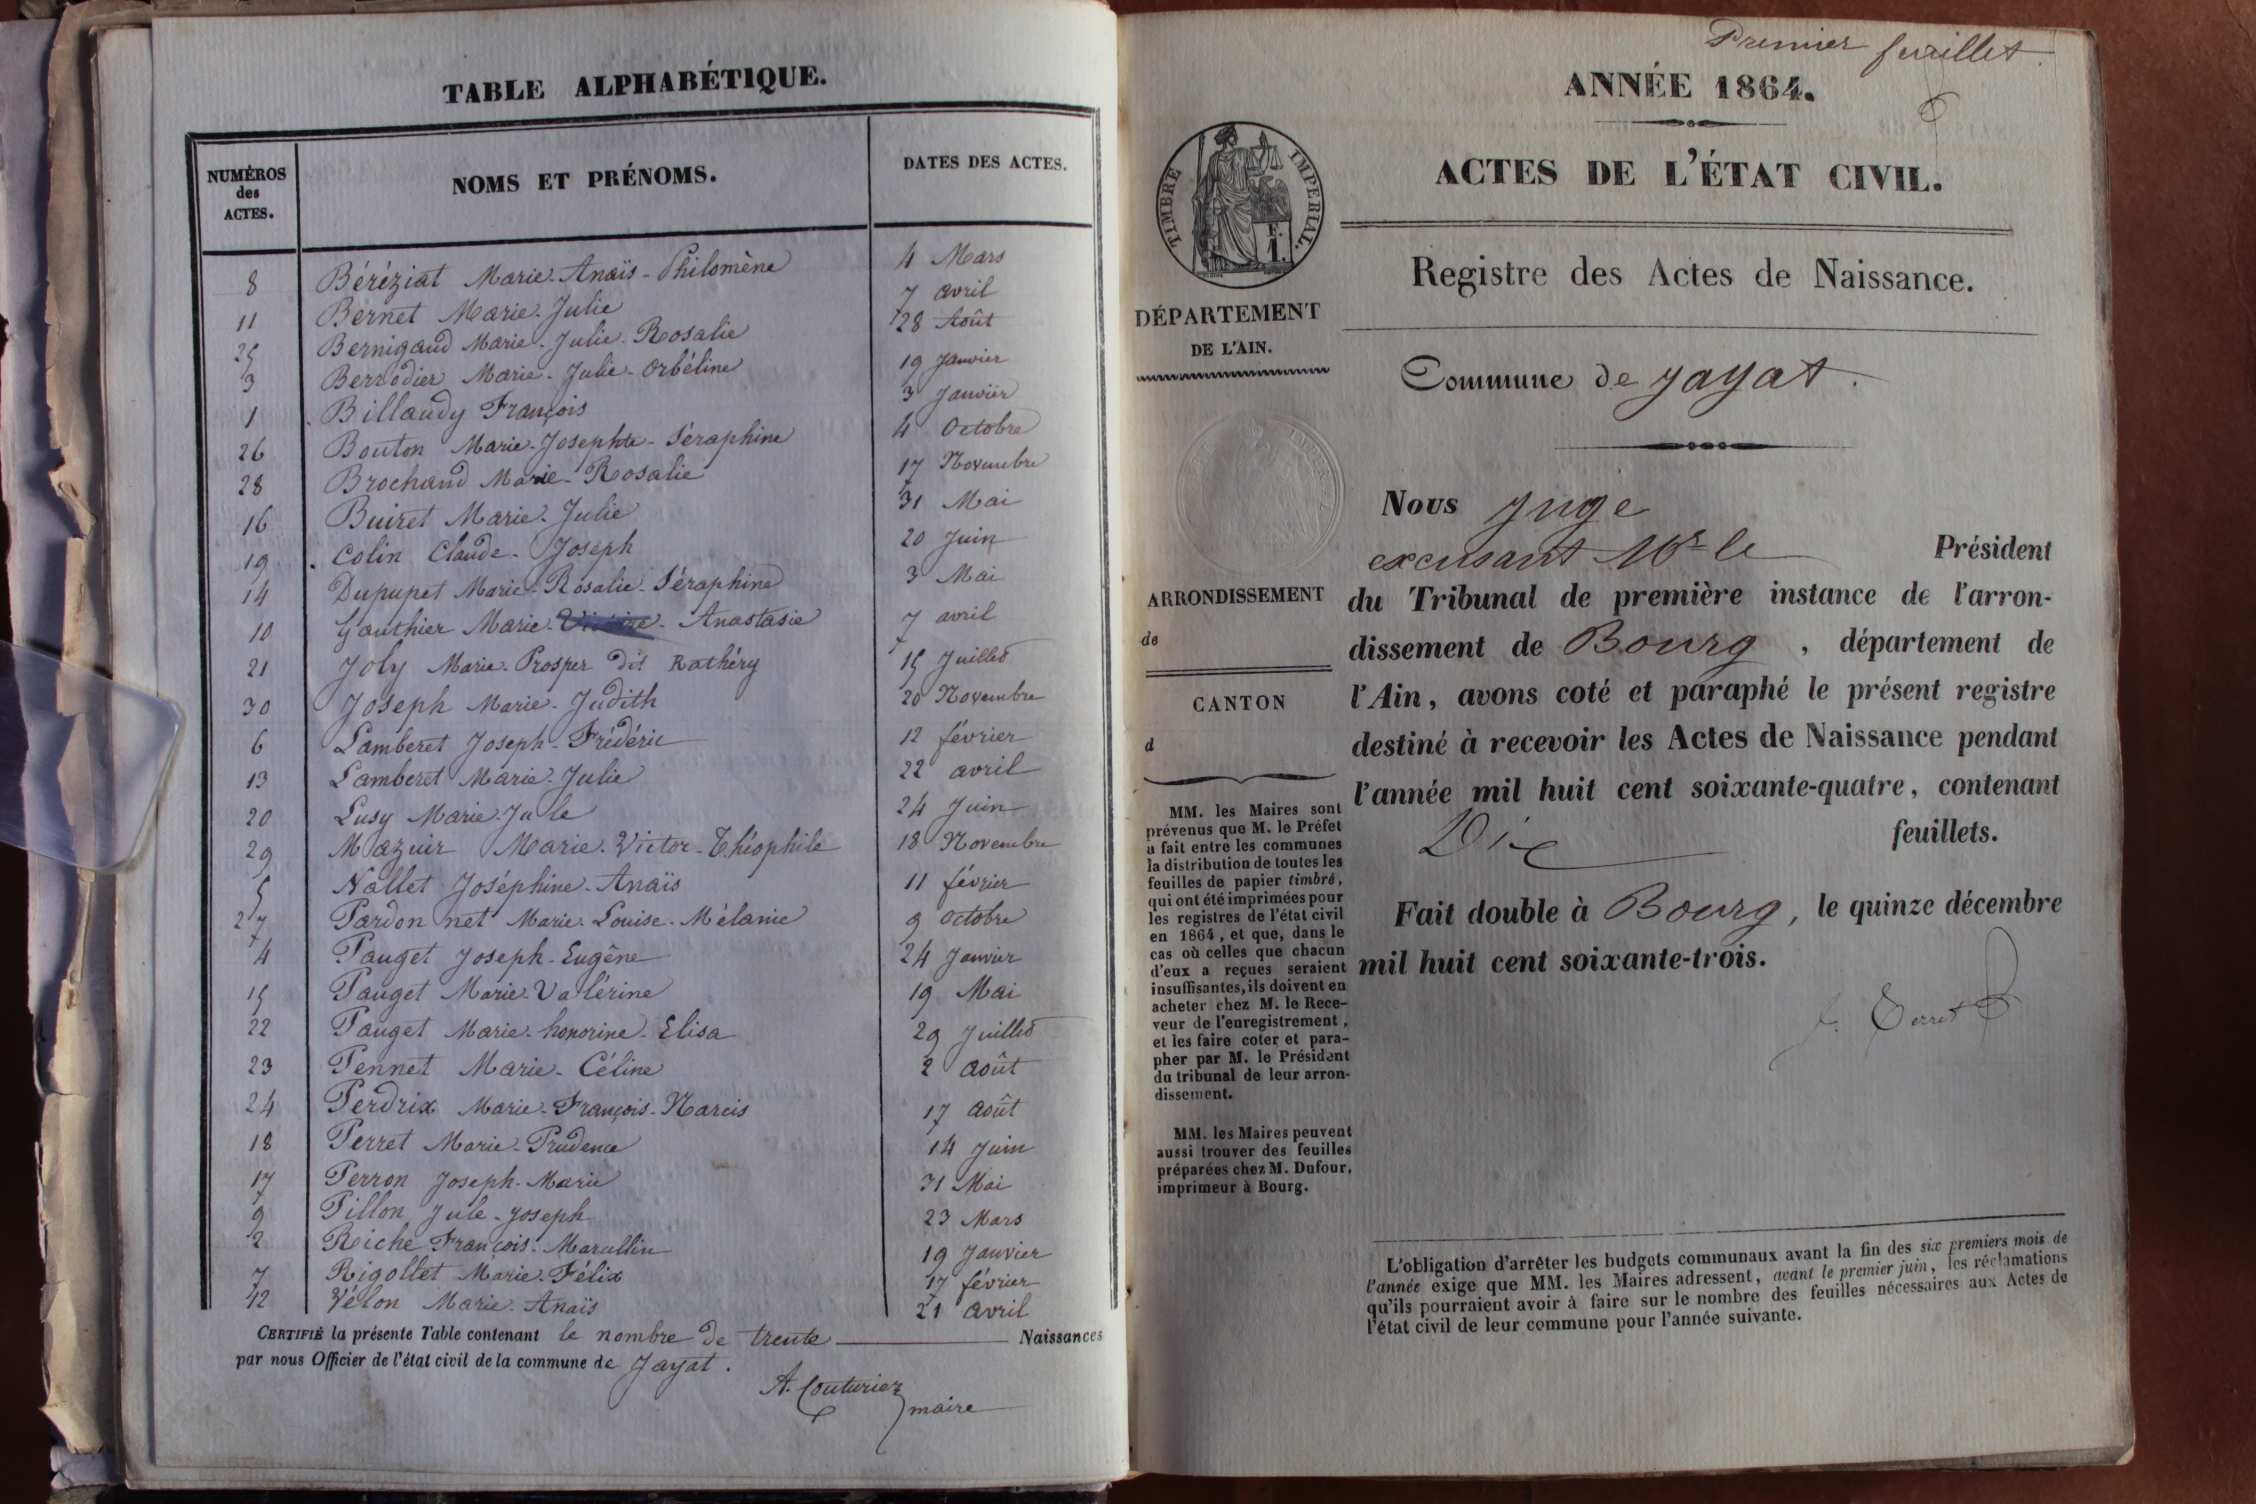 TABLE ALPHABÉTIQUE.
NUMÉROS des ACTES. NOMS ET PRÉNOMS. DATES DES ACTES.
8 Béréziat Marie-Anaïs-Philomène 4 Mars
11 Bernet Marie-Julie 7 avril
25 Bernigaud Marie-Julie-Rosalie 28 Août
3 Berrodier Marie-Julie-Orbéline 19 Janvier
1 Billaudy François 3 Janvier
26 Bouton Marie-Josephte-Séraphine 4 Octobre
28 Brochand Marie-Rosalie 17 Novembre
16 Buiret Marie-Julie 31 Mai
19 Colin Claude-Joseph 20 Juin
14 Dupupet Marie-Rosalie-Séraphine 3 Mai
10 Gauthier Marie- - Anastasie 7 avril
21 Joly Marie-Prosper dit Rathéry 15 Juillet
30 Joseph Marie-Judith 20 Novembre
6 Lamberet Joseph-Frédéric 12 février
13 Lamberet Marie-Julie 22 avril
20 Lusy Marie-Jule 24 Juin
29 Mazuir Marie-Victor-Théophile 18 Novembre
5 Nallet Joséphine-Anaïs 11 février
27 Pardonnet Marie-Louise-Mélanie 9 Octobre
4 Pauget Joseph-Eugène 24 Janvier
15 Pauget Marie-Valérine 19 Mai
22 Pauget Marie-honorine-Elisa 29 Juillet
23 Pennet Marie-Céline 2 août
24 Perdrix Marie-François-Narcis 17 août
18 Perret Marie-Prudence 14 Juin
17 Perron Joseph-Marie 31 Mai
9 Pillon Jule-Joseph 23 Mars
2 Reiche François-Marcellin 19 Janvier
7 Rigollet Marie-Félix 17 février
12 Vélon Marie-Anaïs 21 avril
CERTIFIÉ la présente Table contenant le nombre de trente Naissances
par nous Officier de l'état civil de la commune de Jayat.
A. Couturier
maire
Premier feuillet.
ANNÉE 1864.
ACTES DE L'ÉTAT CIVIL.
TIMBRE IMPERIAL.
F.
1.
Registre des Actes de Naissance.
DÉPARTEMENT
DE L'AIN.
Commune de Jayat.
ARRONDISSEMENT
de
CANTON
d
MM. les Maires sont
prévenus que M. le Préfet
a fait entre les communes
la distribution de toutes les
feuilles de papier timbré,
qui ont été imprimées pour
les registres de l'état civil
en 1864, et que, dans le
cas où celles que chacun
d'eux a reçues seraient
insuffisantes, ils doivent en
acheter chez M. le Rece-
veur de l'enregistrement,
et les faire coter et para-
pher par M. le Président
du tribunal de leur arron-
dissement.
MM. les Maires peuvent
aussi trouver des feuilles
préparées chez M. Dufour,
imprimeur à Bourg.
Nous Juge
excusant Mr le Président
du Tribunal de première instance de l'arron-
dissement de Bourg, département de
l'Ain, avons coté et paraphé le présent registre
destiné à recevoir les Actes de Naissance pendant
l'année mil huit cent soixante-quatre, contenant
Dix feuillets.
Fait double à Bourg, le quinze décembre
mil huit cent soixante-trois.
L'obligation d'arrêter les budgets communaux avant la fin des six premiers mois de
l'année exige que MM. les Maires adressent, avant le premier juin, les réclamations
qu'ils pourraient avoir à faire sur le nombre des feuilles nécessaires aux Actes de
l'état civil de leur commune pour l'année suivante.